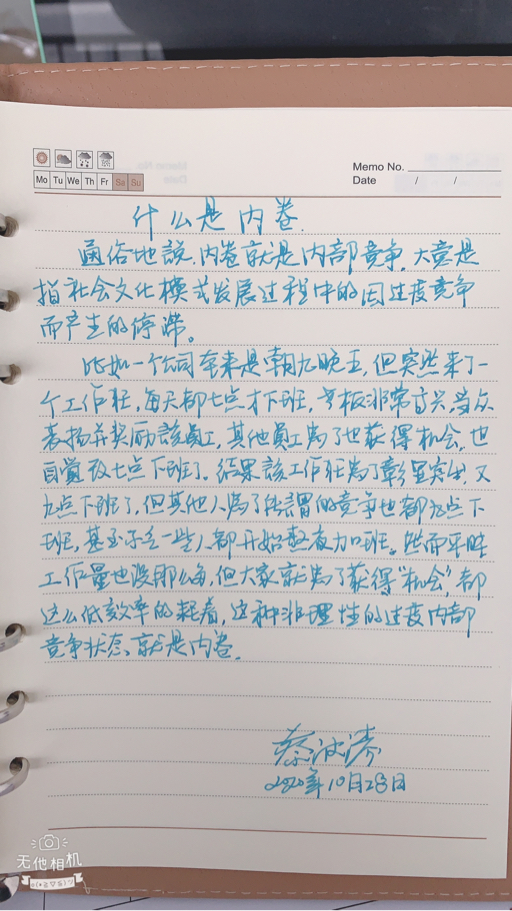 Memo No.
Mo Tu We Th Fr Sa Su
Date / /
什么是内卷.
通俗地說,内卷就是内部竞争,大意是
指社会文化模式发展过程中的因过度竞争
而产生的停滞。
比如一个公司本来是朝九晚五,但突然来了一
个工作狂,每天都七点才下班,老板非常高兴,当众
表扬并奖励該員工,其他員工為了也获得机会,也
自覺改七点下班了。结果該工作狂為了彰显突出,又
九点下班了,但其他人為了所謂的竞争也都九点下
班,甚至不乏一些人都开始整夜加班。然而平時
工作量也没那么多,但大家就為了获得“机会”,都
这么低效率的耗着,这种非理性的过度内部
竞争状态,就是内卷。
2020年10月28日
无他相机